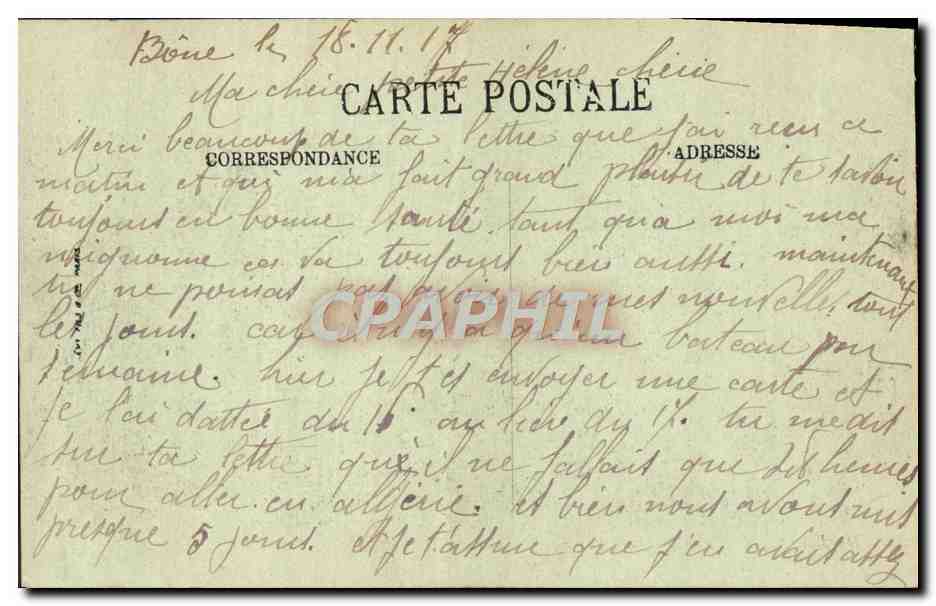 Bône le 18.11.17
Ma chère petite Hélène chérie
CARTE POSTALE
Merci beaucoup de ta lettre que j'ai reçu ce
CORRESPONDANCE
ADRESSE
matin et qui ma fait grand plaisir de te savoir
toujours en bonne santé tant qu'a moi ma
mignonne ça va toujours bien aussi. maintenant
tu ne pourras pas avoir de mes nouvelles tout
les jours. car il n'y a qu'un bateau par
semaine. hier je t'es envoyer une carte et
je l'ai dattée du 11 au lieu du 17. tu me dit
sur ta lettre qu'il ne fallait que dix heures
pour aller en algérie. et bien nous avons mis
presque 5 jours. et je t'assure que j'en avait assez
CPAPHIL